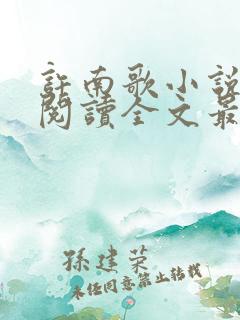 許南歌小說
閱讀全文最
孫建荣
未经同意禁止转载